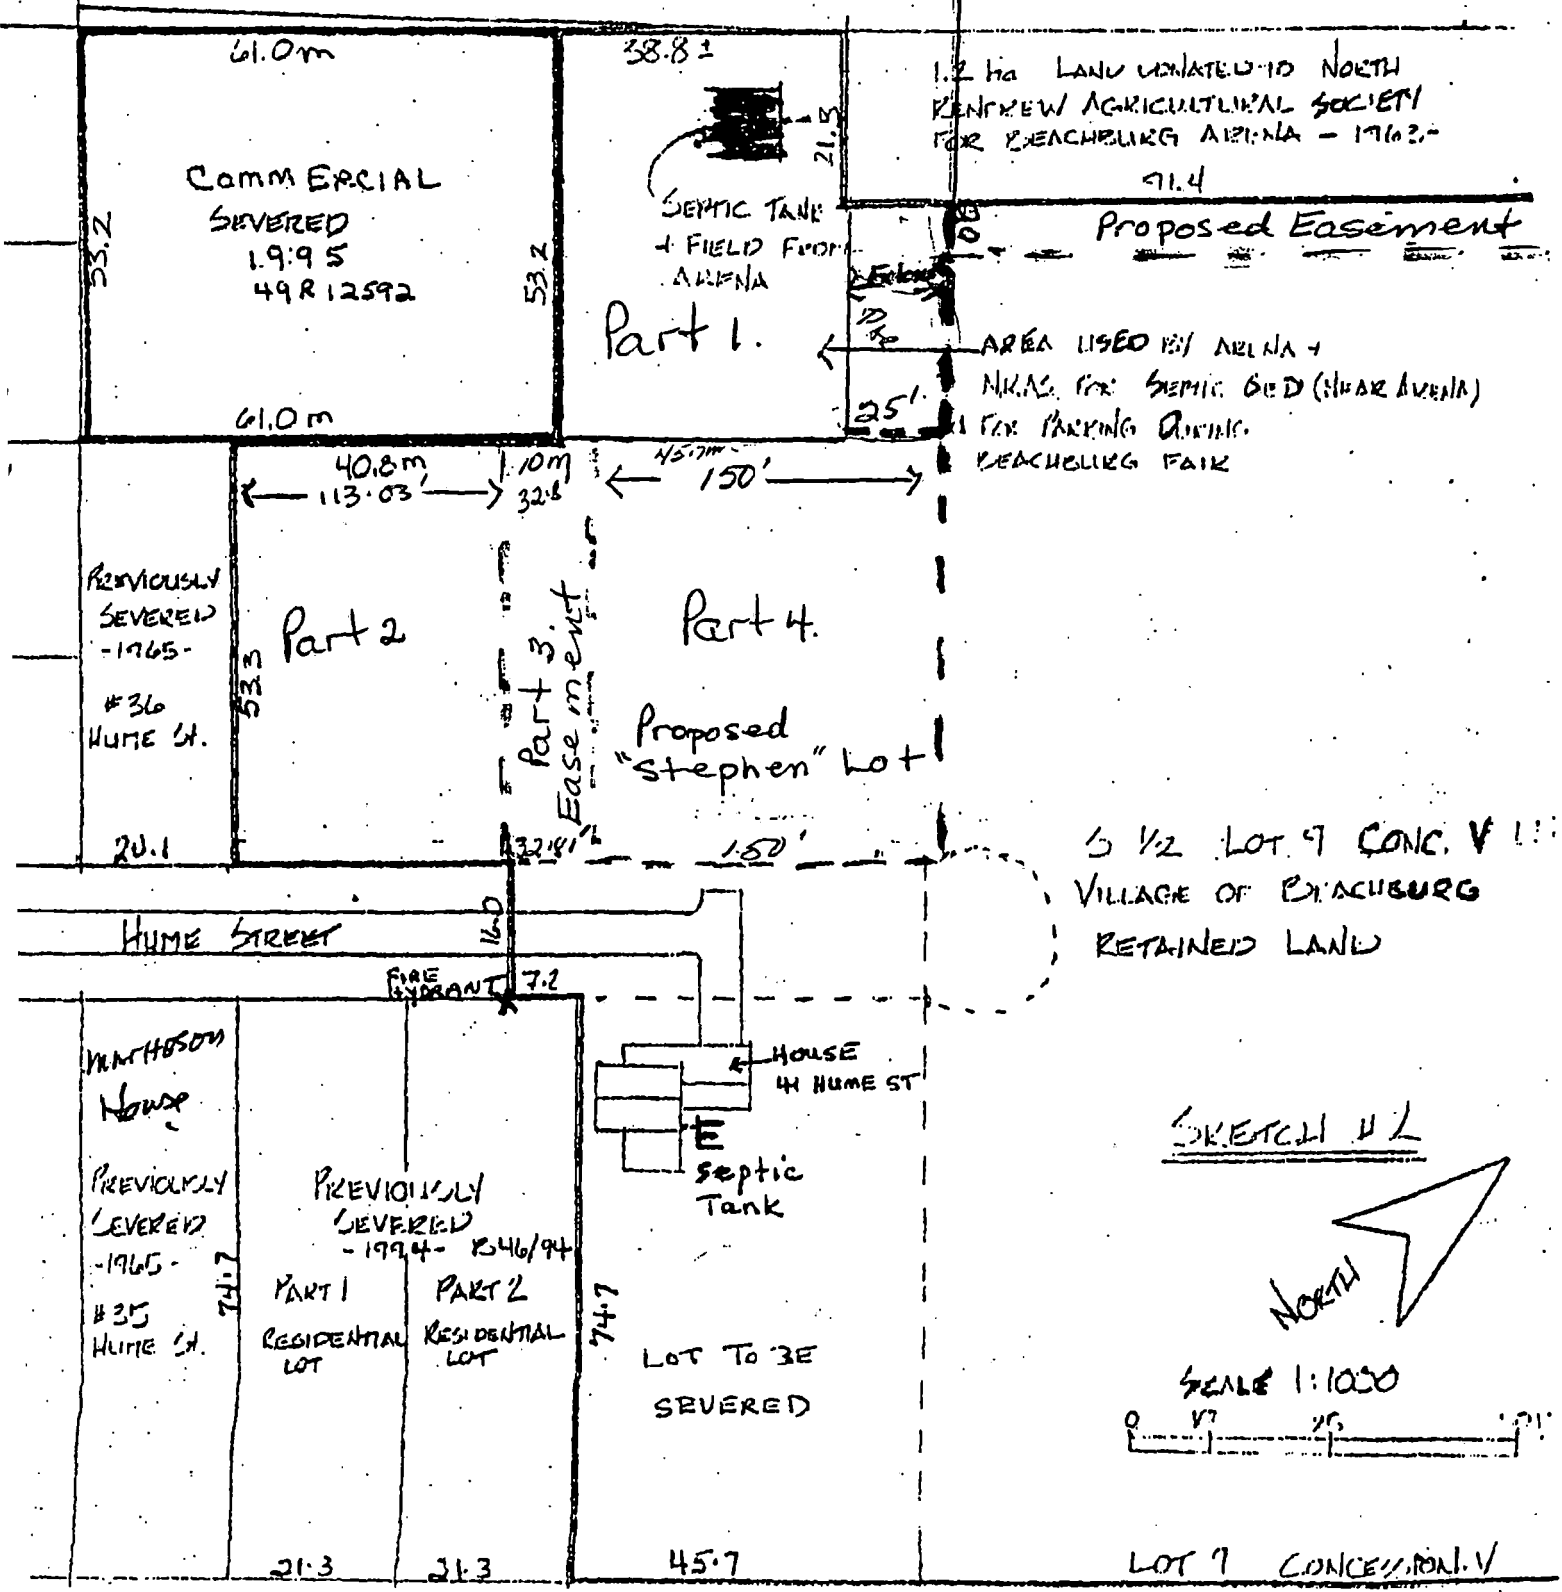 61.0m
38.8±
1.2 ha LAND DONATED TO NORTH
RENFREW AGRICULTURAL SOCIETY
FOR BEACHBURG ARENA - 1963-
21.5
COMMERCIAL
SEVERED
1995
49R12592
53.2
53.2
91.4
SEPTIC TANK
+ FIELD FROM
ARENA
Proposed Easement
Part 1.
AREA USED BY ARENA +
NRAS FOR SEPTIC BED (NEAR ARENA)
+ FOR PARKING DURING
BEACHBURG FAIR
25'
61.0m
40.8m
113.03'
10m
32.8'
45.7m
150'
PREVIOUSLY
SEVERED
-1965-
#36
HUME St.
53.3
Part 2
Part 3.
Easement
Part 4.
Proposed
"Stephen" Lot
20.1
32.81'
150'
S 1/2 LOT 9 CONC. V
VILLAGE OF BEACHBURG
RETAINED LAND
HUME STREET
16.0
FIRE
HYDRANT
7.2
MATHESON
House
HOUSE
41 HUME ST
E
Septic
Tank
SKETCH #2
NORTH
PREVIOUSLY
SEVERED
-1965-
#35
HUME St.
74.7
PREVIOUSLY
SEVERED
-1994- B46/94
PART 1
RESIDENTIAL
LOT
PART 2
RESIDENTIAL
LOT
74.7
LOT TO BE
SEVERED
SCALE 1:1000
0
21.3
21.3
45.7
LOT 9 CONCESSION V